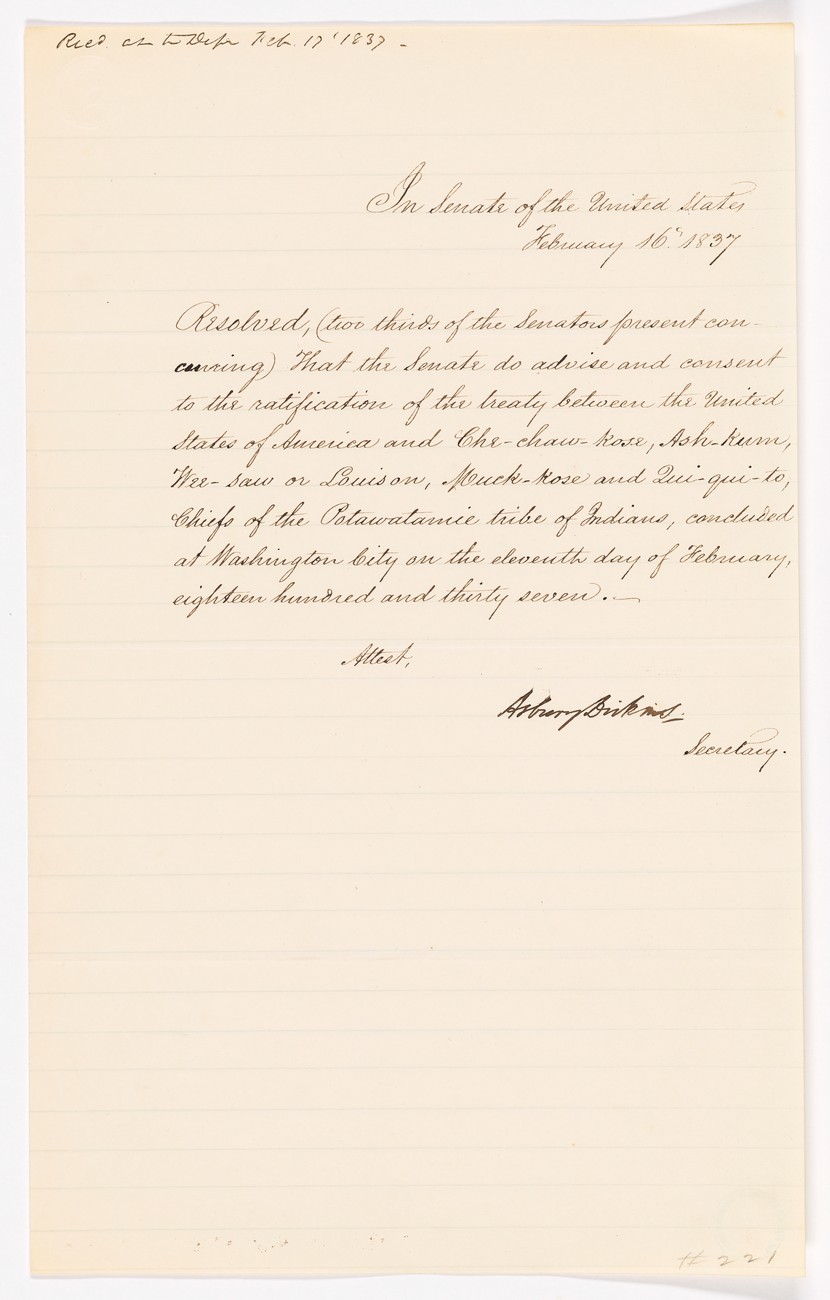 Recd. at the Depr Feb. 17' 1837 -
In Senate of the United States
February 16th. 1837
Resolved, (two thirds of the Senators present con-
curring) That the Senate do advise and consent
to the ratification of the treaty between the United
States of America and Che-chaw-kose, Ash-kum,
Wee-saw or Louison, Muck-kose and Qui-qui-to,
Chiefs of the Potawatamie tribe of Indians, concluded
at Washington City on the eleventh day of February,
eighteen hundred and thirty seven.—
Attest,
Asbury Dickins.
Secretary.
# 221